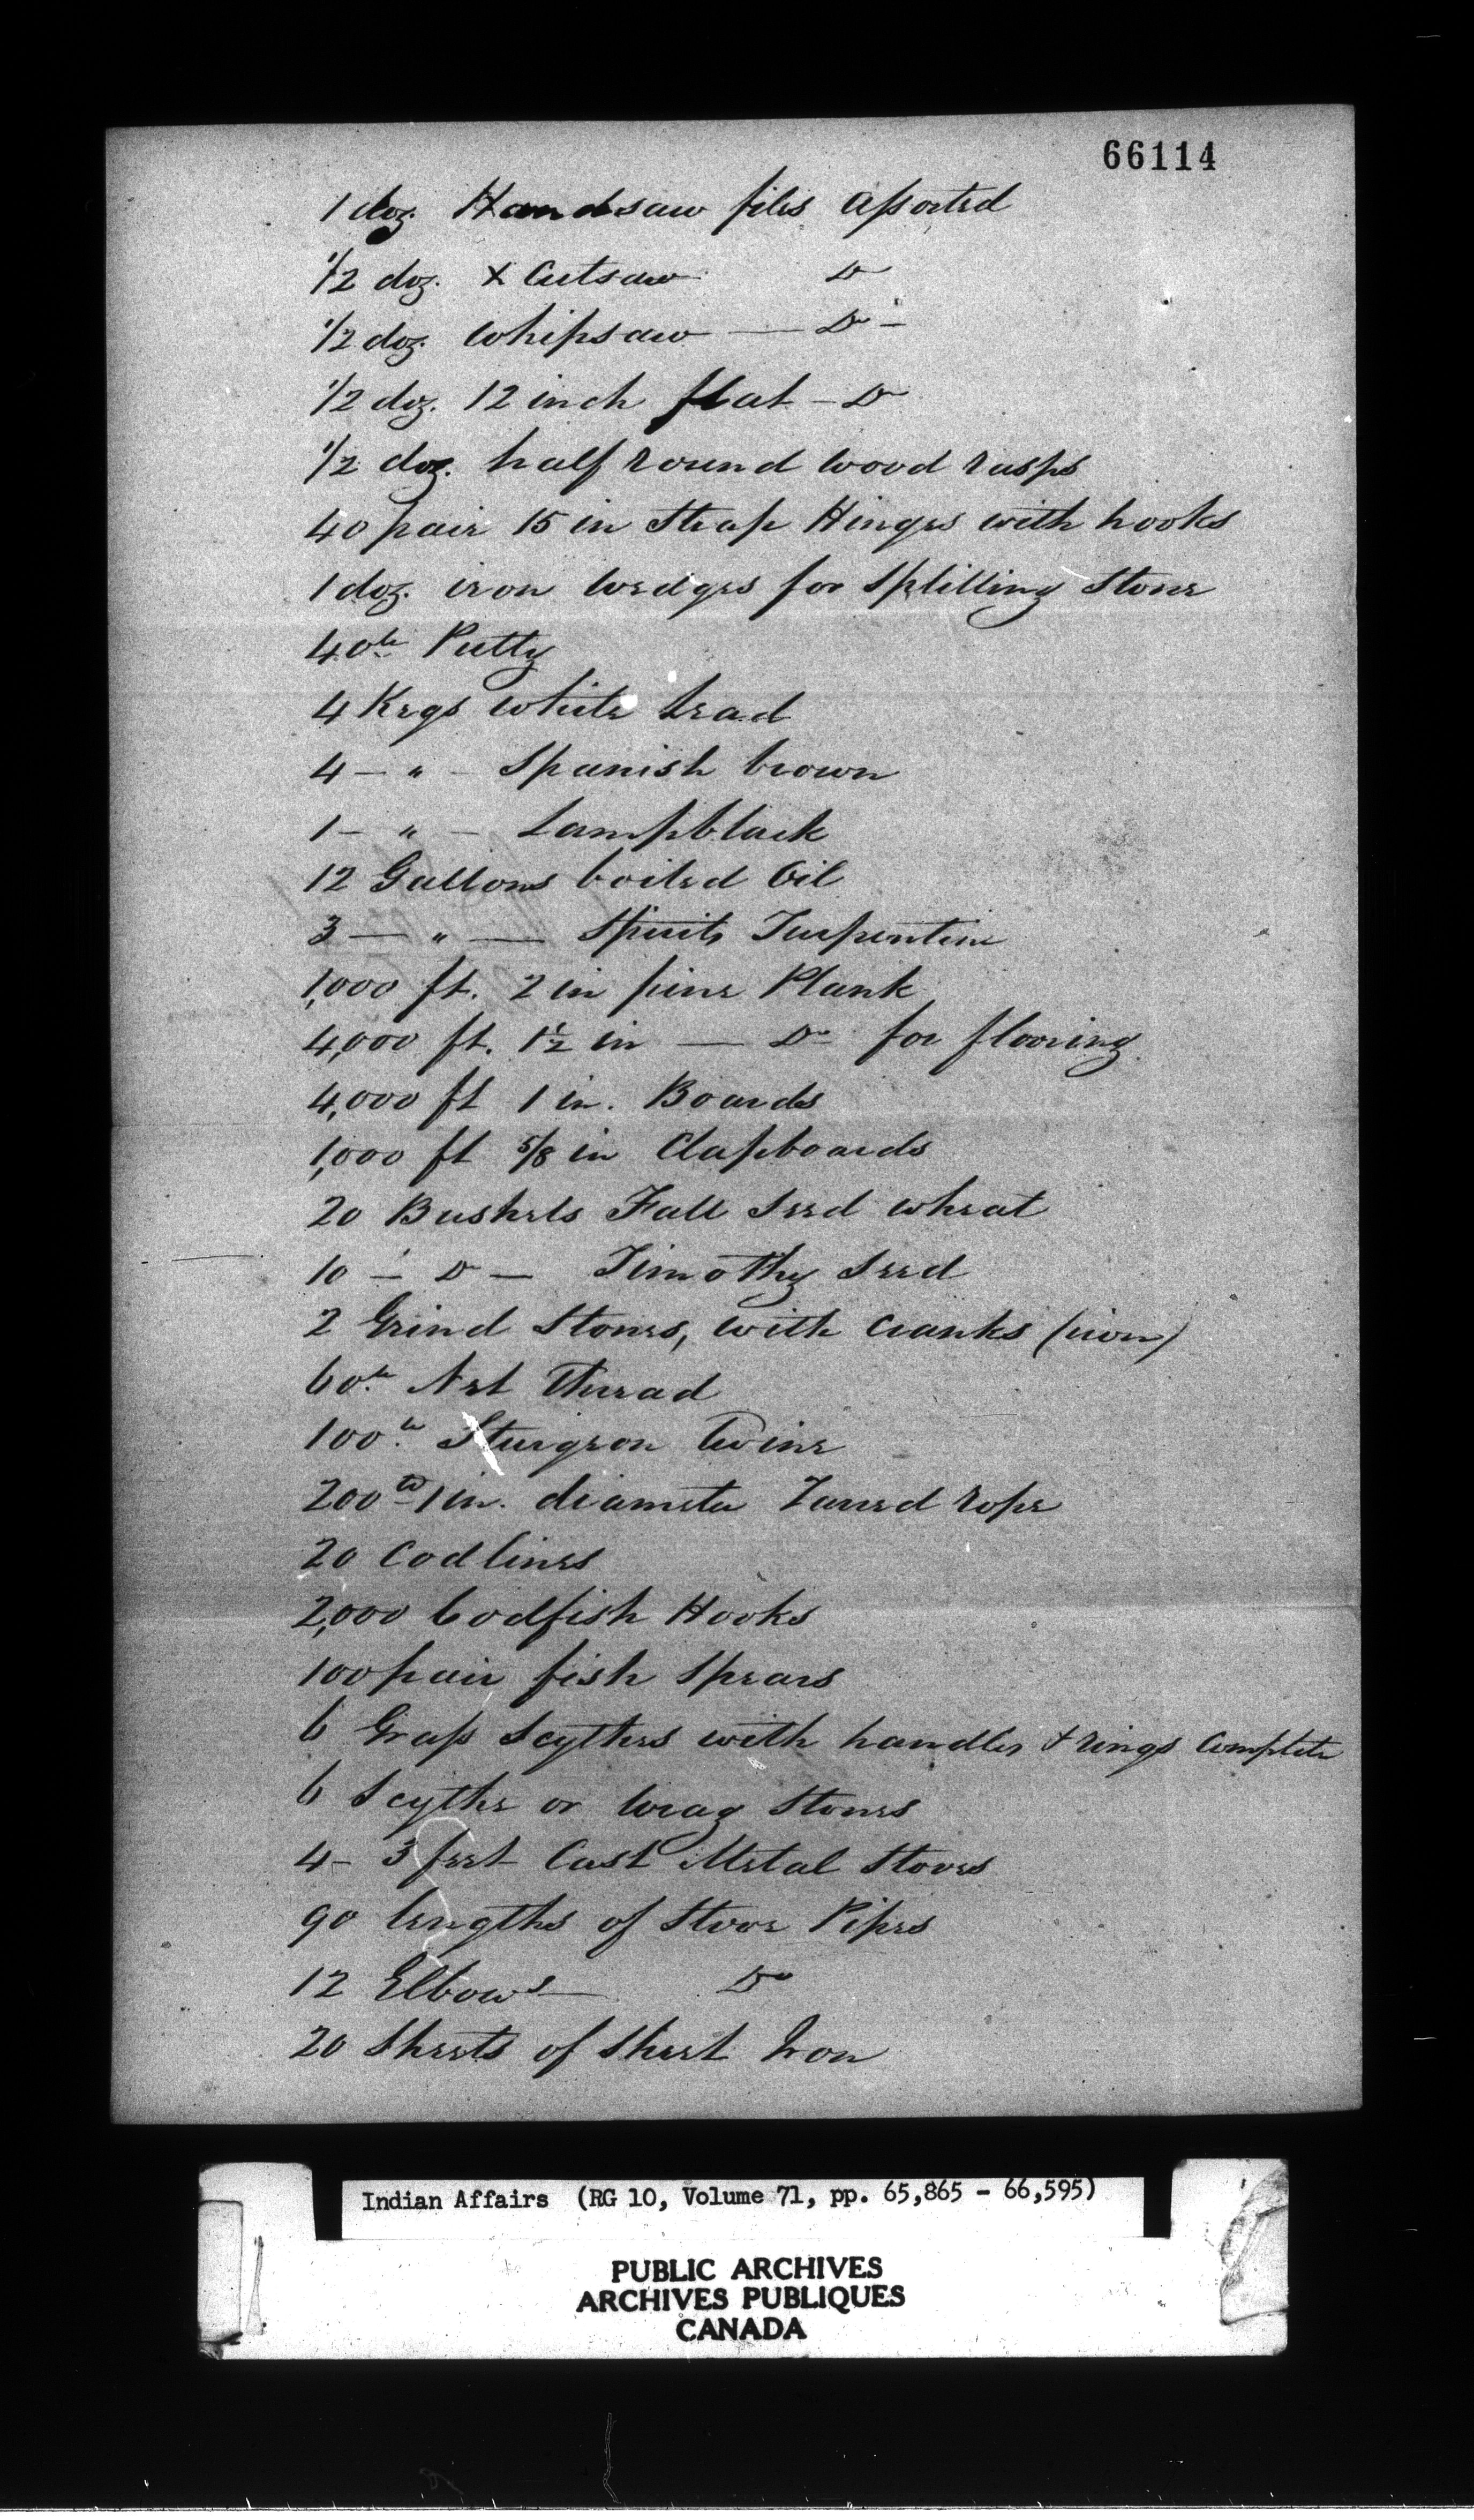 66114
1 doz. Handsaw files Assorted
1/2 doz. X Cutsaw Do
1/2 doz. Whipsaw — Do —
1/2 doz. 12 inch flat — Do
1/2 doz. half round wood rasps
40 pair 15 in Strap Hinges with hooks
1 doz. iron wedges for Splitting Stone
40 lb Putty
4 Kegs White Lead
4 — " — Spanish brown
1 — " — Lampblack
12 Gallons boiled Oil
3 — " — Spirits Turpentine
1,000 ft. 2 in pine Plank
4,000 ft. 1 1/2 in — Do for flooring
4,000 ft 1 in. Boards
1,000 ft 5/8 in Clapboards
20 Bushels Fall Seed wheat
10 — Do — Timothy Seed
2 Grind Stones, with Cranks (iron)
60 lb Net Thread
100 lb Sturgeon Twine
200 lb 1 in. diameter Tarred rope
20 Codlines
2,000 Codfish Hooks
100 pair fish Spears
6 Grass Scythes with handles + rings Complete
6 Scythe or Wrag Stones
4 — 3 feet Cast Metal Stoves
90 lengths of Stove Pipes
12 Elbows — Do
20 Sheets of Sheet Iron
Indian Affairs (RG 10, Volume 71, pp. 65,865 - 66,595)
PUBLIC ARCHIVES
ARCHIVES PUBLIQUES
CANADA